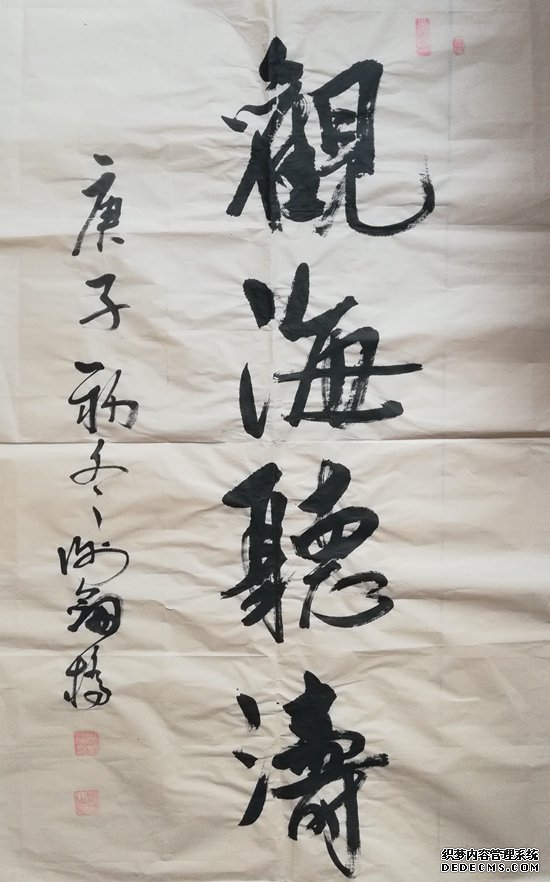 觀海聽濤
庚子初冬
织梦内容管理系统
DEDECMS.COM